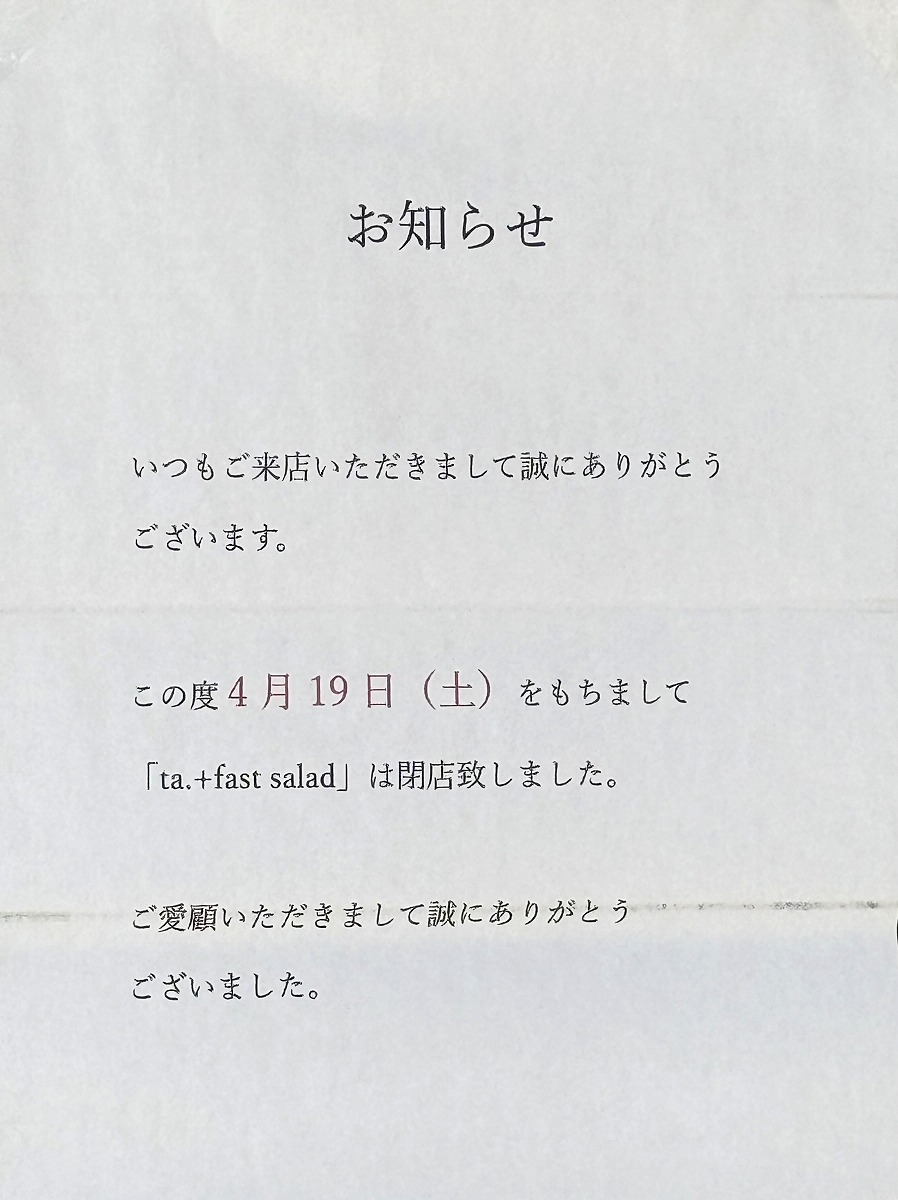 お知らせ
いつもご来店いただきまして誠にありがとう
ございます。
この度4月19日（土）をもちまして
「ta.+fast salad」は閉店致しました。
ご愛顧いただきまして誠にありがとう
ございました。